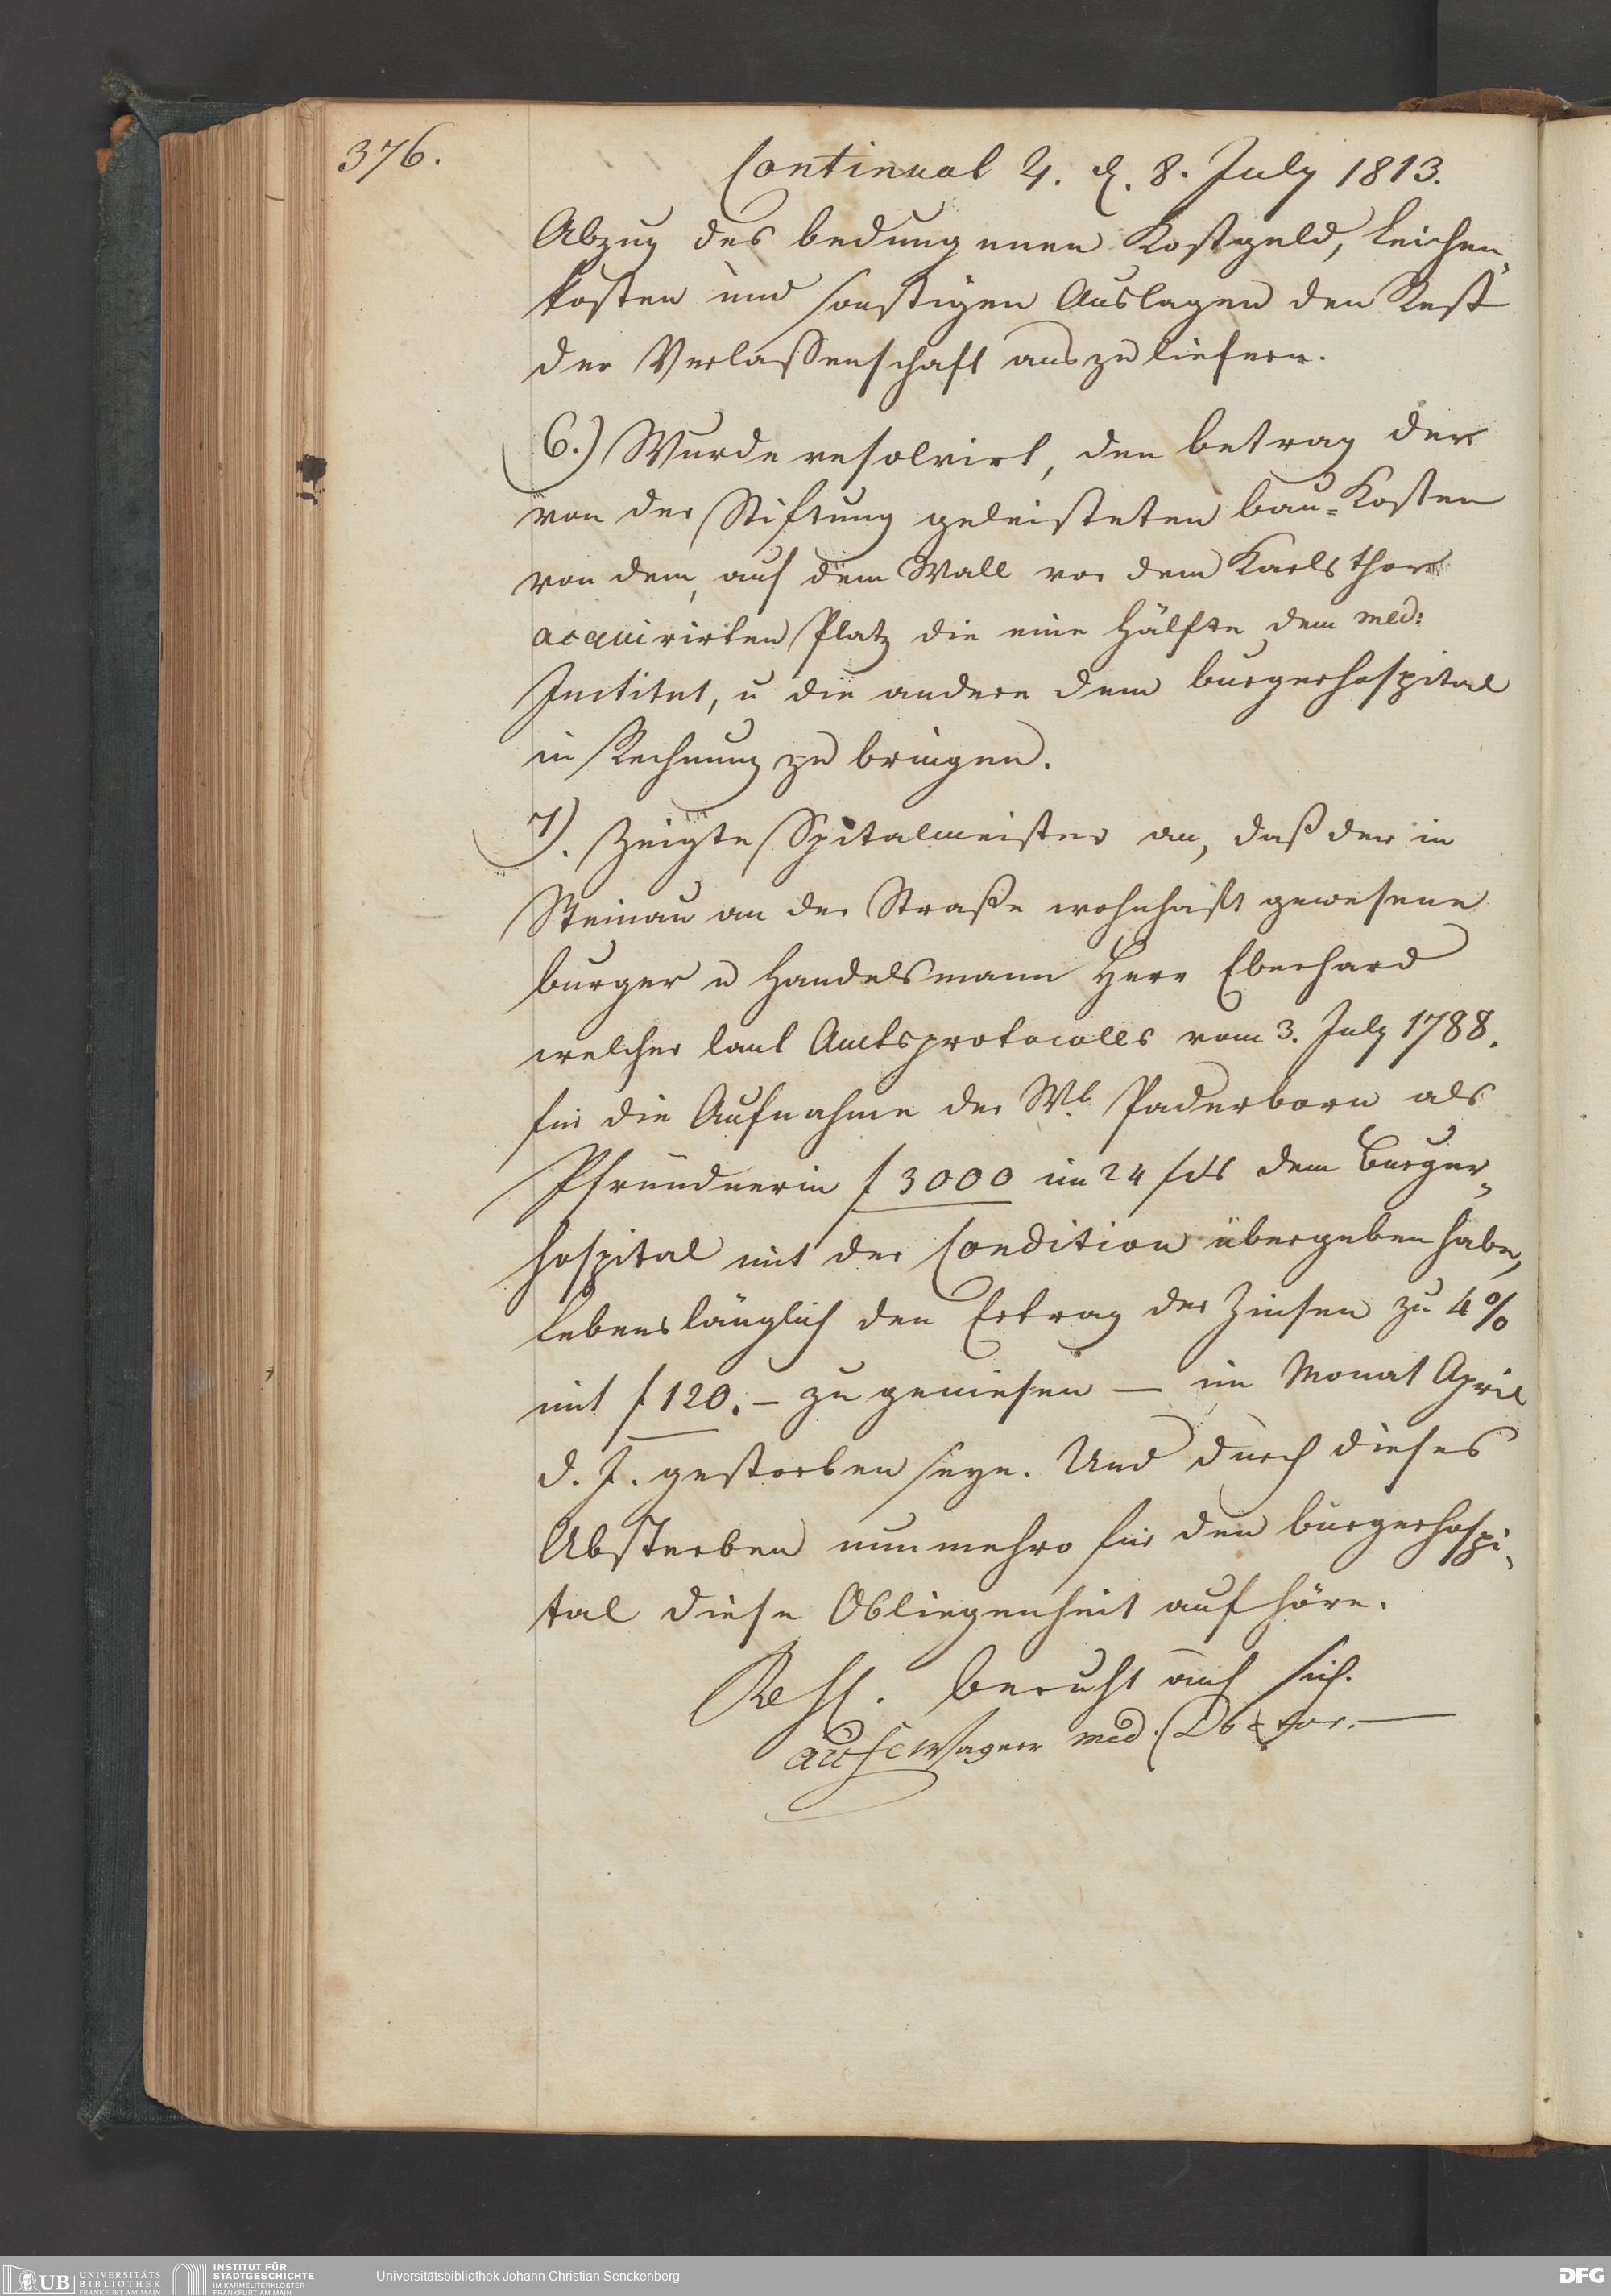 376.
Continuat 4. d. 8. July 1813.
Abzug des bedungenen Kostgeld, Leichen„
kosten und sonstigen Auslagen den Rest
der Verlassenschaft auszuliefern.
6.) Wurde resolvirt, den betrag der
von der Stiftung geleisteten bau-Kosten
von dem, auf dem Wall vor dem Karlsthor
acquirirten Platz die eine Hälfte dem med:
Institut, u die andere dem burgerhospital
in Rechnung zu bringen.
7). Zeigte Spitalmeister an, daß der in
Steinau an der Straße wohnhaft gewesene
burger u Handelsmann Herr Eberhard
welcher laut Amtsprotocolls vom 3. July 1788.
für die Aufnahme der Wb. Paderborn als
Pfründnerin f 3000 im 24 f dem Burger„
hospital mit der Condition übergeben habe,
Lebenslänglich den Ertrag der Zinsen zu 4%
mit f 120.– zu geniesen — im Monat April
d. J. gestorben seye. Und durch dieses
Absterben nunmehro für den burgerhospi„
tal diese Obliegenheit aufhöre.
Resl. beruht auf sich.
Wagner med. Doctor.—
UB UNIVERSITÄTS
BIBLIOTHEK
FRANKFURT AM MAIN
INSTITUT FÜR
STADTGESCHICHTE
IM KARMELITERKLOSTER
FRANKFURT AM MAIN
Universitätsbibliothek Johann Christian Senckenberg
DFG